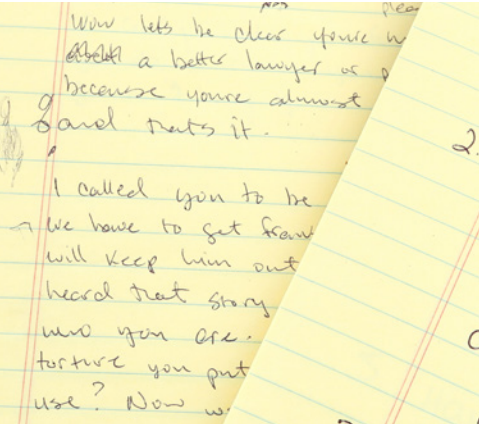 Now lets be clear youre
a better lawyer or
because youre almost
and thats it.
I called you to be
we have to get
will keep him out
heard that story
who you are.
torture you put
use? Now
2.